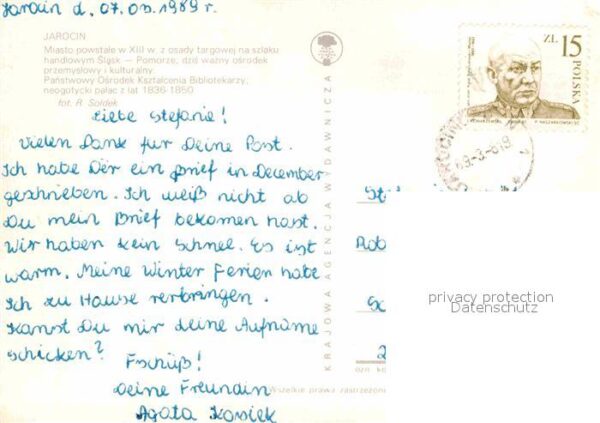 Jarocin d. 07.03.1989 r.
JAROCIN
Miasto powstałe w XIII w. z osady targowej na szlaku
handlowym Śląsk — Pomorze; dziś ważny ośrodek
przemysłowy i kulturalny.
Państwowy Ośrodek Kształcenia Bibliotekarzy;
neogotycki pałac z lat 1836-1850
fot. R. Sołdek
Liebe Stefanie!
Vielen Dank für Deine Post.
Ich habe Der ein Brief in December
geschrieben. Ich weiß nicht ab
Du mein Brief bekomen hast.
Wir haben kein Schnel. Es ist
warm. Meine Winter Ferien habe
Ich zu Hause verbringen.
Kanst Du mir deine Aufname
schicken?
Tschüß!
Deine Freundin
Agata
KRAJOWA AGENCJA WYDAWNICZA
Wszelkie prawa zastrzeżone
ZŁ 15
POLSKA
privacy protection
Datenschutz